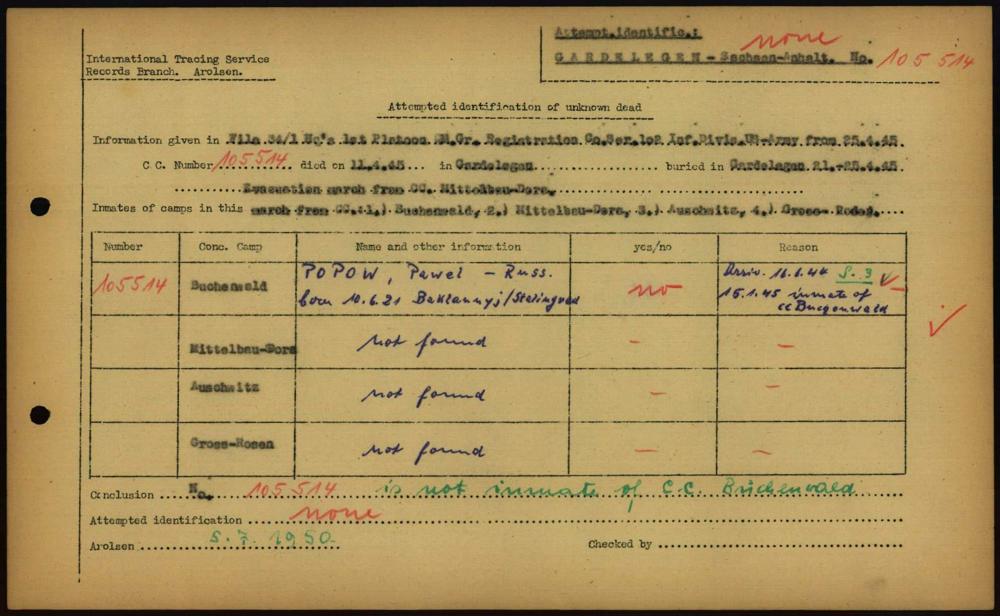 Attempt.identific.: none
GARDELEGEN - Sachsen-Anhalt. No. 105 514
International Tracing Service
Records Branch. Arolsen.
Attempted identification of unknown dead
Information given in File 34/1 Hq's 1st Platoon Gr. Registration Co.Ser.102 Inf.Divis.US-Army from 25.4.45.
C.C. Number 105514 died on 11.4.45 in Gardelegen buried in Gardelegen 21.-25.4.45.
Evacuation march from CC. Mittelbau-Dora.
Inmates of camps in this march from CC.:1.) Buchenwald, 2.) Mittelbau-Dora, 3.) Auschwitz, 4.) Gross-Rosen.
Number Conc. Camp Name and other information yes/no Reason
105514 Buchenwald POPOW, Paweł - Russ. no S. 3
born 10.6.21 /Stalingrad 15.1.45 inmate of
CC
Mittelbau-Dora not found - -
Auschwitz not found - -
Gross-Rosen not found - -
Conclusion No. 105514 is not inmate of C.C. Buchenwald
Attempted identification none
Arolsen 5.7.1950 Checked by